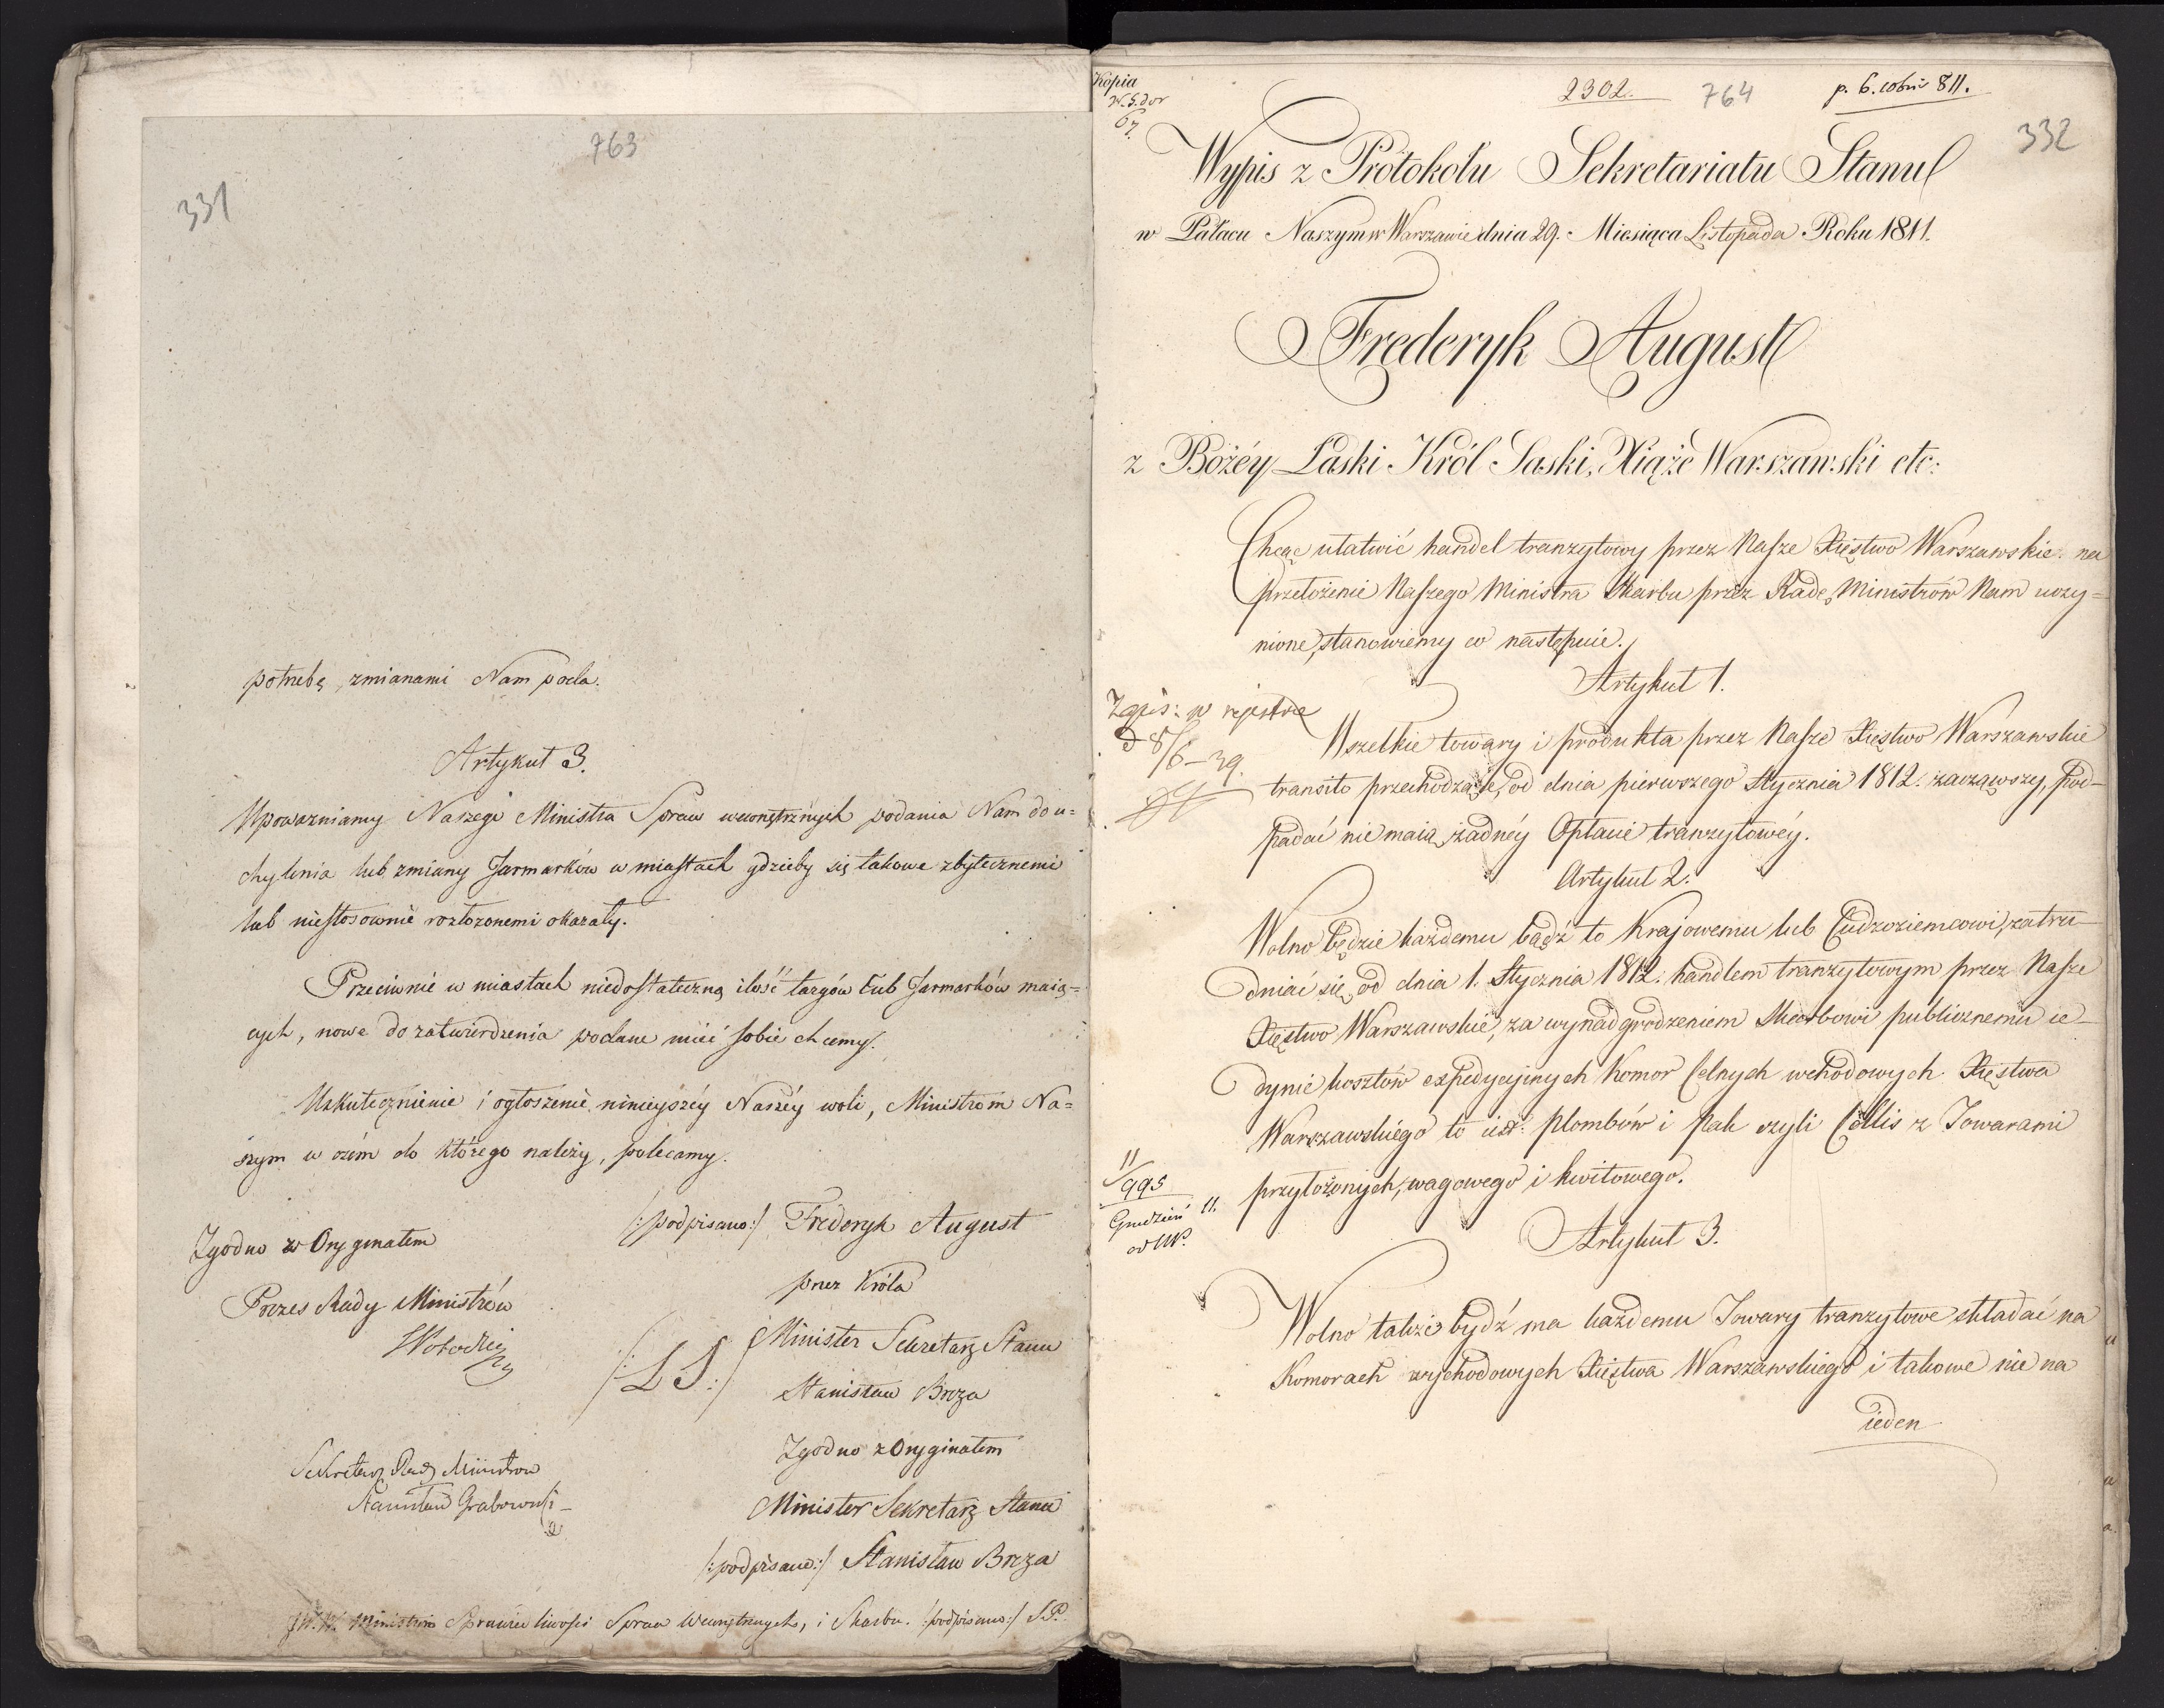 763
331
potrzebę, zmianami Nam poda.
Artykuł 3.
Upoważniamy Naszego Ministra Spraw wewnętrznych podania Nam do u=
chylenia lub zmiany Jarmarków w miastach gdzieby się takowe zbytecznemi
lub niestosownie rozłożonemi okazały.
Przeciwnie w miastach niedostateczną ilość targów lub Jarmarków maią=
cych, nowe do zatwierdzenia podane mieć sobie chcemy.
Uskutecznienie i ogłoszenie ninieyszéy Naszéy woli, Ministrom Na=
szym w czém do którego należy, polecamy.
/:podpisano:/ Fryderyk August
Zgodno z Oryginałem
przez Króla
Prezes Rady Ministrów
Minister Sekretarz Stanu
/:LS:/
Stanisław Breza
Zgodno z Oryginałem
Sekretarz Rady Ministrów
Stanisław Grabowski
Minister Sekretarz Stanu
/:podpisano:/ Stanisław Breza
J.W.W. Ministrów Sprawiedliwości Spraw Wewnętrznych, i Skarbu. /:podpisano:/ S.P.
Kopia
2302.
764
811.
67.
332
Wypis z Protokołu Sekretariatu Stanu
w Pałacu Naszym w Warszawie dnia 29. Miesiąca Listopada Roku 1811.
Frederyk August
z Bożéy Łaski Król Saski, Xiąże Warszawski etc:
Chcąc ułatwić handel tranzytowy przez Nasze Xięstwo Warszawskie. na
przełożenie Naszego Ministra Skarbu przez Radę Ministrów Nam uczy=
nione, stanowiemy co następuie.
Artykuł 1.
Zapis: w rejestrze
Wszelkie towary i produkta przez Nasze Xięstwo Warszawskie
d 8/6 – 39.
transito przechodzące, od dnia pierwszego Stycznia 1812. zacząwszy, pod-
padać nie maią żadnéy Opłacie tranzytowéy.
Artykuł 2.
Wolno będzie każdemu bądź to Krajowemu lub Cudzoziemcowi, zatru-
dniać się od dnia 1. Stycznia 1812. handlem tranzytowym przez Nasze
Xięstwo Warszawskie, za wynadgrodzeniem Skarbowi publicznemu ie-
dynie kosztów expedycyjnych Komor Celnych wchodowych Xięstwa
Warszawskiego to iest: plombów i Pak czyli Collis z Towarami
11/995
przyłożonych, wagowego i kwitowego.
Grudzień 11.
Artykuł 3.
Wolno także bydź ma każdemu Towary tranzytowe składać na
Komorach wychodowych Xięstwa Warszawskiego i takowe nie na
ieden